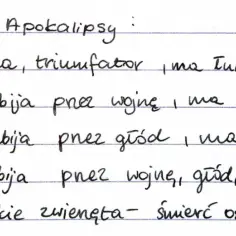 Apokalipsy :
a, triumfator, ma łu
bija przez wojnę, ma
bija przez głód, ma
bija przez wojnę, głód,
cie zwienęta - śmierć o